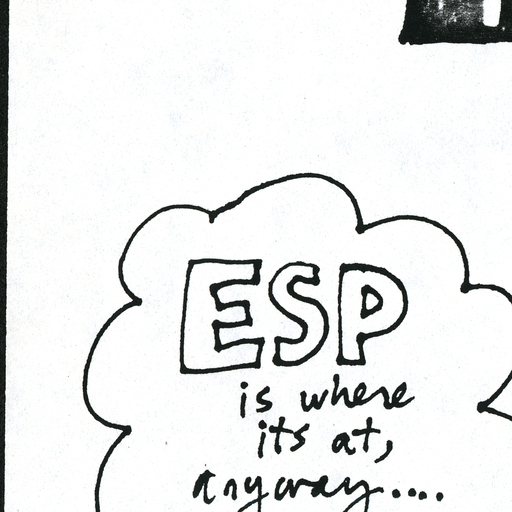 ESP
is where
its at,
anyway....